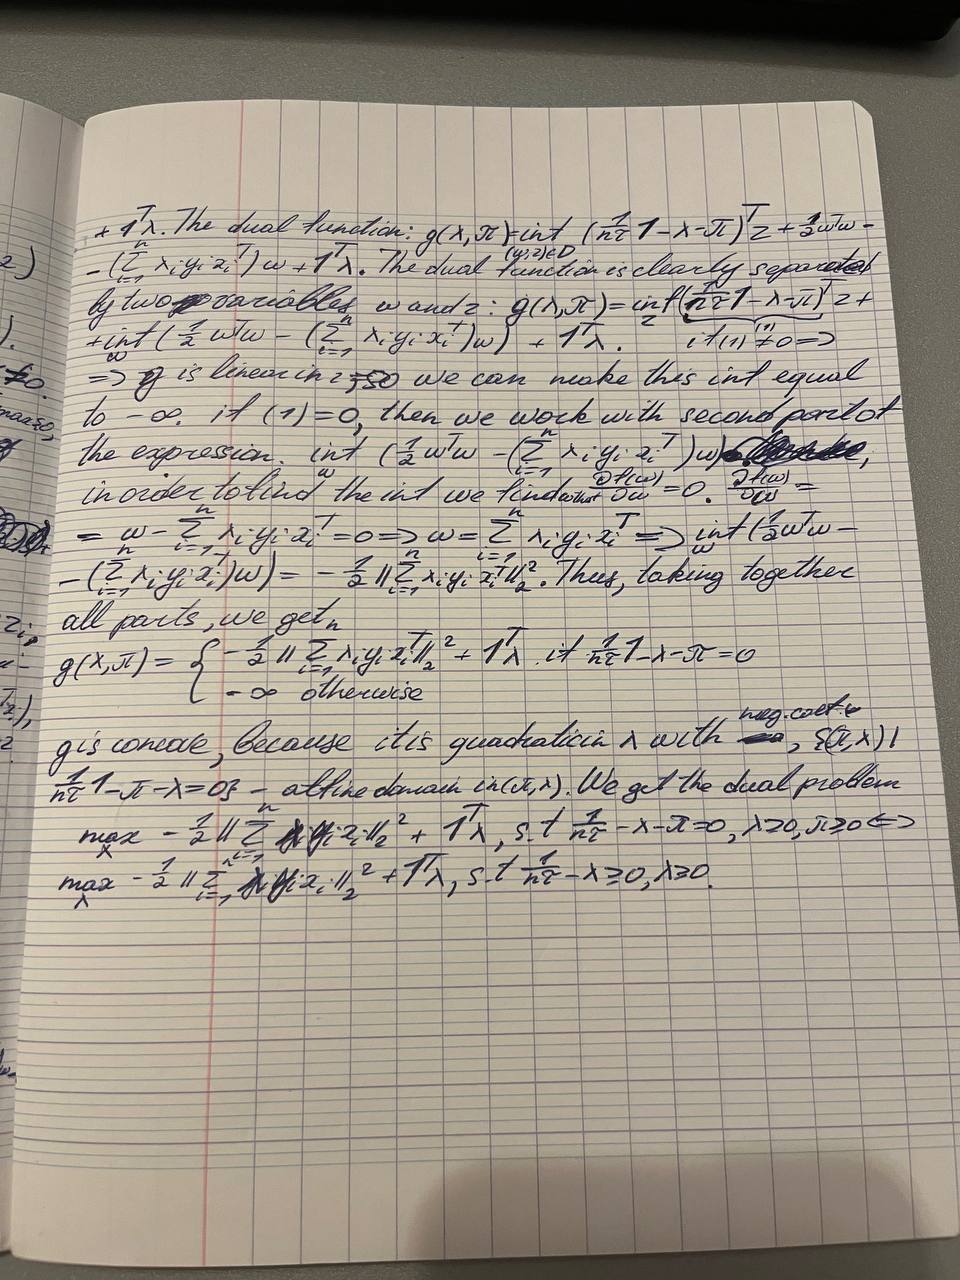 + 1ᵀλ. The dual function: g(λ,π)=inf (1/nτ 1-λ-π)ᵀz + 1/2 wᵀw -
(w,z)∈D
- (∑ᵢ₌₁ⁿ λᵢyᵢxᵢᵀ)w + 1ᵀλ. The dual function is clearly separated
by two variables w and z: g(λ,π) = inf_z (1/nτ 1-λ-π)ᵀz +
(1)
+ inf_w (1/2 wᵀw - (∑ᵢ₌₁ⁿ λᵢyᵢxᵢᵀ)w) + 1ᵀλ. if (1) ≠0 =>
=> g is linear in z, so we can make this inf equal
to -∞. if (1)=0, then we work with second part of
the expression. inf_w (1/2 wᵀw - (∑ᵢ₌₁ⁿ λᵢyᵢxᵢᵀ)w),
in order to find the inf we find when ∂f(w)/∂w = 0. ∂f(w)/∂w =
= w - ∑ᵢ₌₁ⁿ λᵢyᵢxᵢᵀ = 0 => w = ∑ᵢ₌₁ⁿ λᵢyᵢxᵢᵀ => inf_w (1/2 wᵀw -
- (∑ᵢ₌₁ⁿ λᵢyᵢxᵢᵀ)w) = - 1/2 ||∑ᵢ₌₁ⁿ λᵢyᵢxᵢᵀ||₂². Thus, taking together
all parts, we get
g(λ,π) = { - 1/2 ||∑ᵢ₌₁ⁿ λᵢyᵢxᵢᵀ||₂² + 1ᵀλ. if 1/nτ 1-λ-π=0
-∞ otherwise
g is concave, because it is quadratic in λ with neg. coef., {(π,λ)|
1/nτ 1-π-λ=0} - affine domain in (π,λ). We get the dual problem
max_λ - 1/2 ||∑ᵢ₌₁ⁿ λᵢyᵢxᵢ||₂² + 1ᵀλ, s.t 1/nτ -λ-π=0, λ≥0, π≥0 <=>
max_λ - 1/2 ||∑ᵢ₌₁ⁿ λᵢyᵢxᵢ||₂² + 1ᵀλ, s.t 1/nτ -λ≥0, λ≥0.